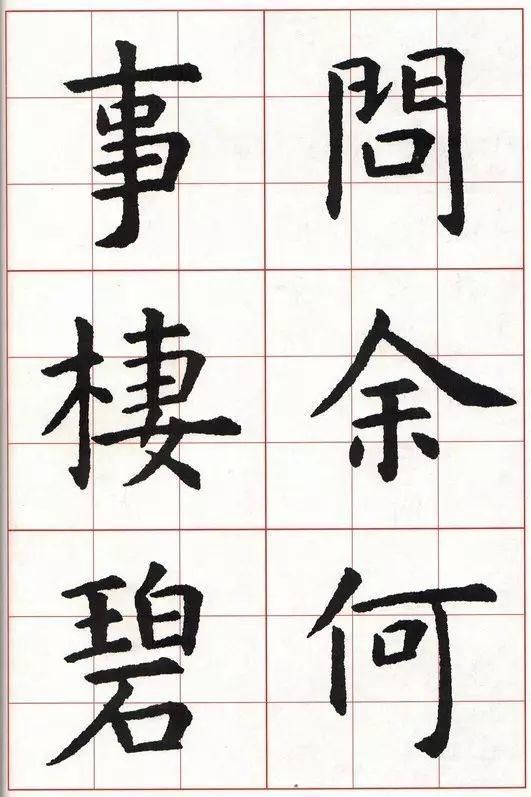 問余何
事棲碧